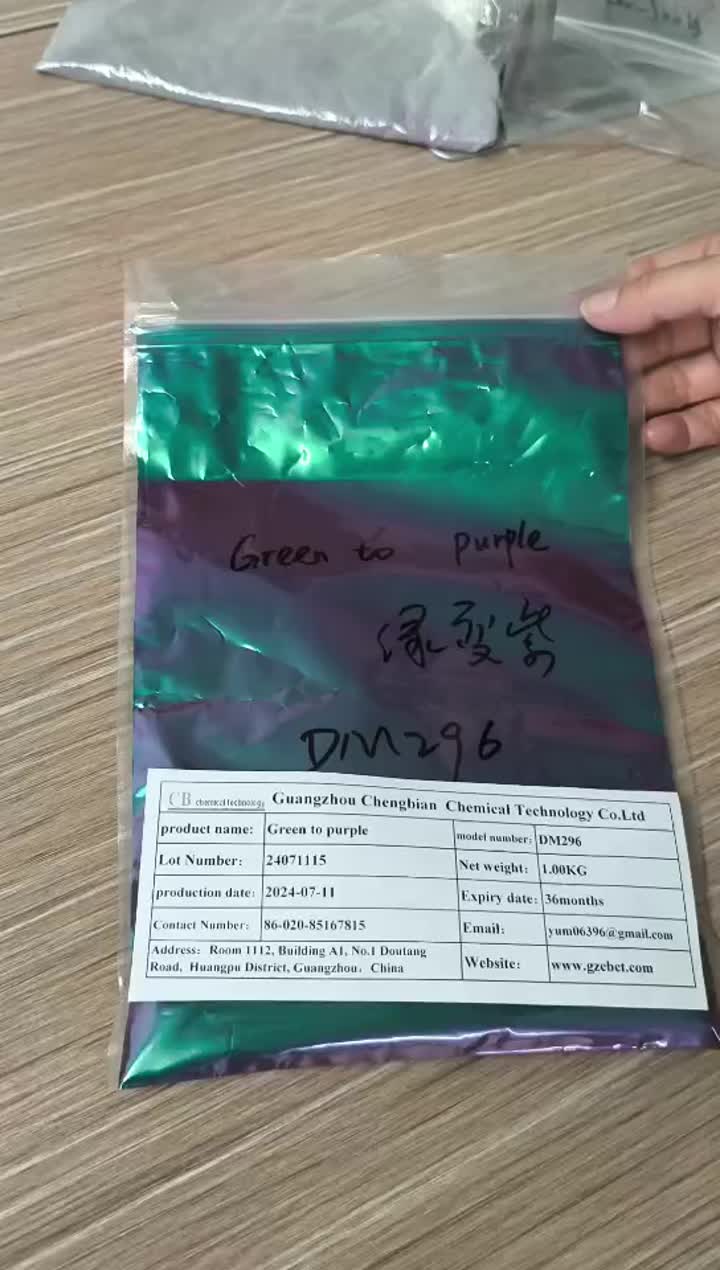 Green to purple
绿变紫
DM296
CB chemical technology Guangzhou Chengbian Chemical Technology Co.Ltd
product name: Green to purple model number: DM296
Lot Number: 24071115 Net weight: 1.00KG
production date: 2024-07-11 Expiry date: 36months
Contact Number: 86-020-85167815 Email: yum06396@gmail.com
Address: Room 1112, Building A1, No.1 Doutang
Road, Huangpu District, Guangzhou, China Website: www.gzebct.com